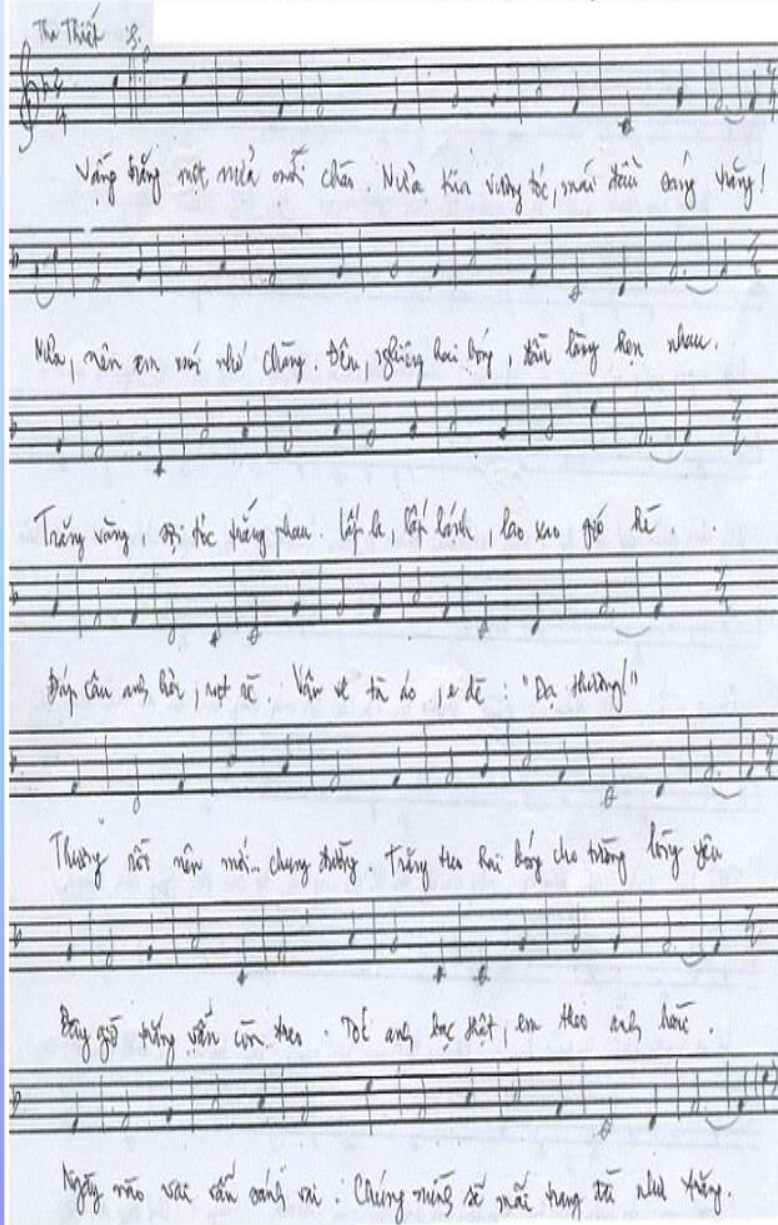 Tha Thiết
Vầng trăng một nửa. Nửa kia vương tóc, mái đầu sáng trăng!
Nửa, nên em mới nhớ chăng. Đêm, nghiêng hai bóng, lòng hẹn nhau.
Trăng vàng sợi tóc trắng phau. Lấp la, lấp lánh, lao xao gió hè..
Đáp câu anh hỏi, rụt rè. Vân vê tà áo, e dè : "Dạ thương!"
Thương rồi nên mới chung đường. Trăng treo hai bóng cho tường lòng yêu
Bây giờ trăng vẫn còn treo. Tóc anh bạc thật, em theo anh hoài.
Ngày nào vai vẫn sánh vai. Chúng mình sẽ mãi như trăng.